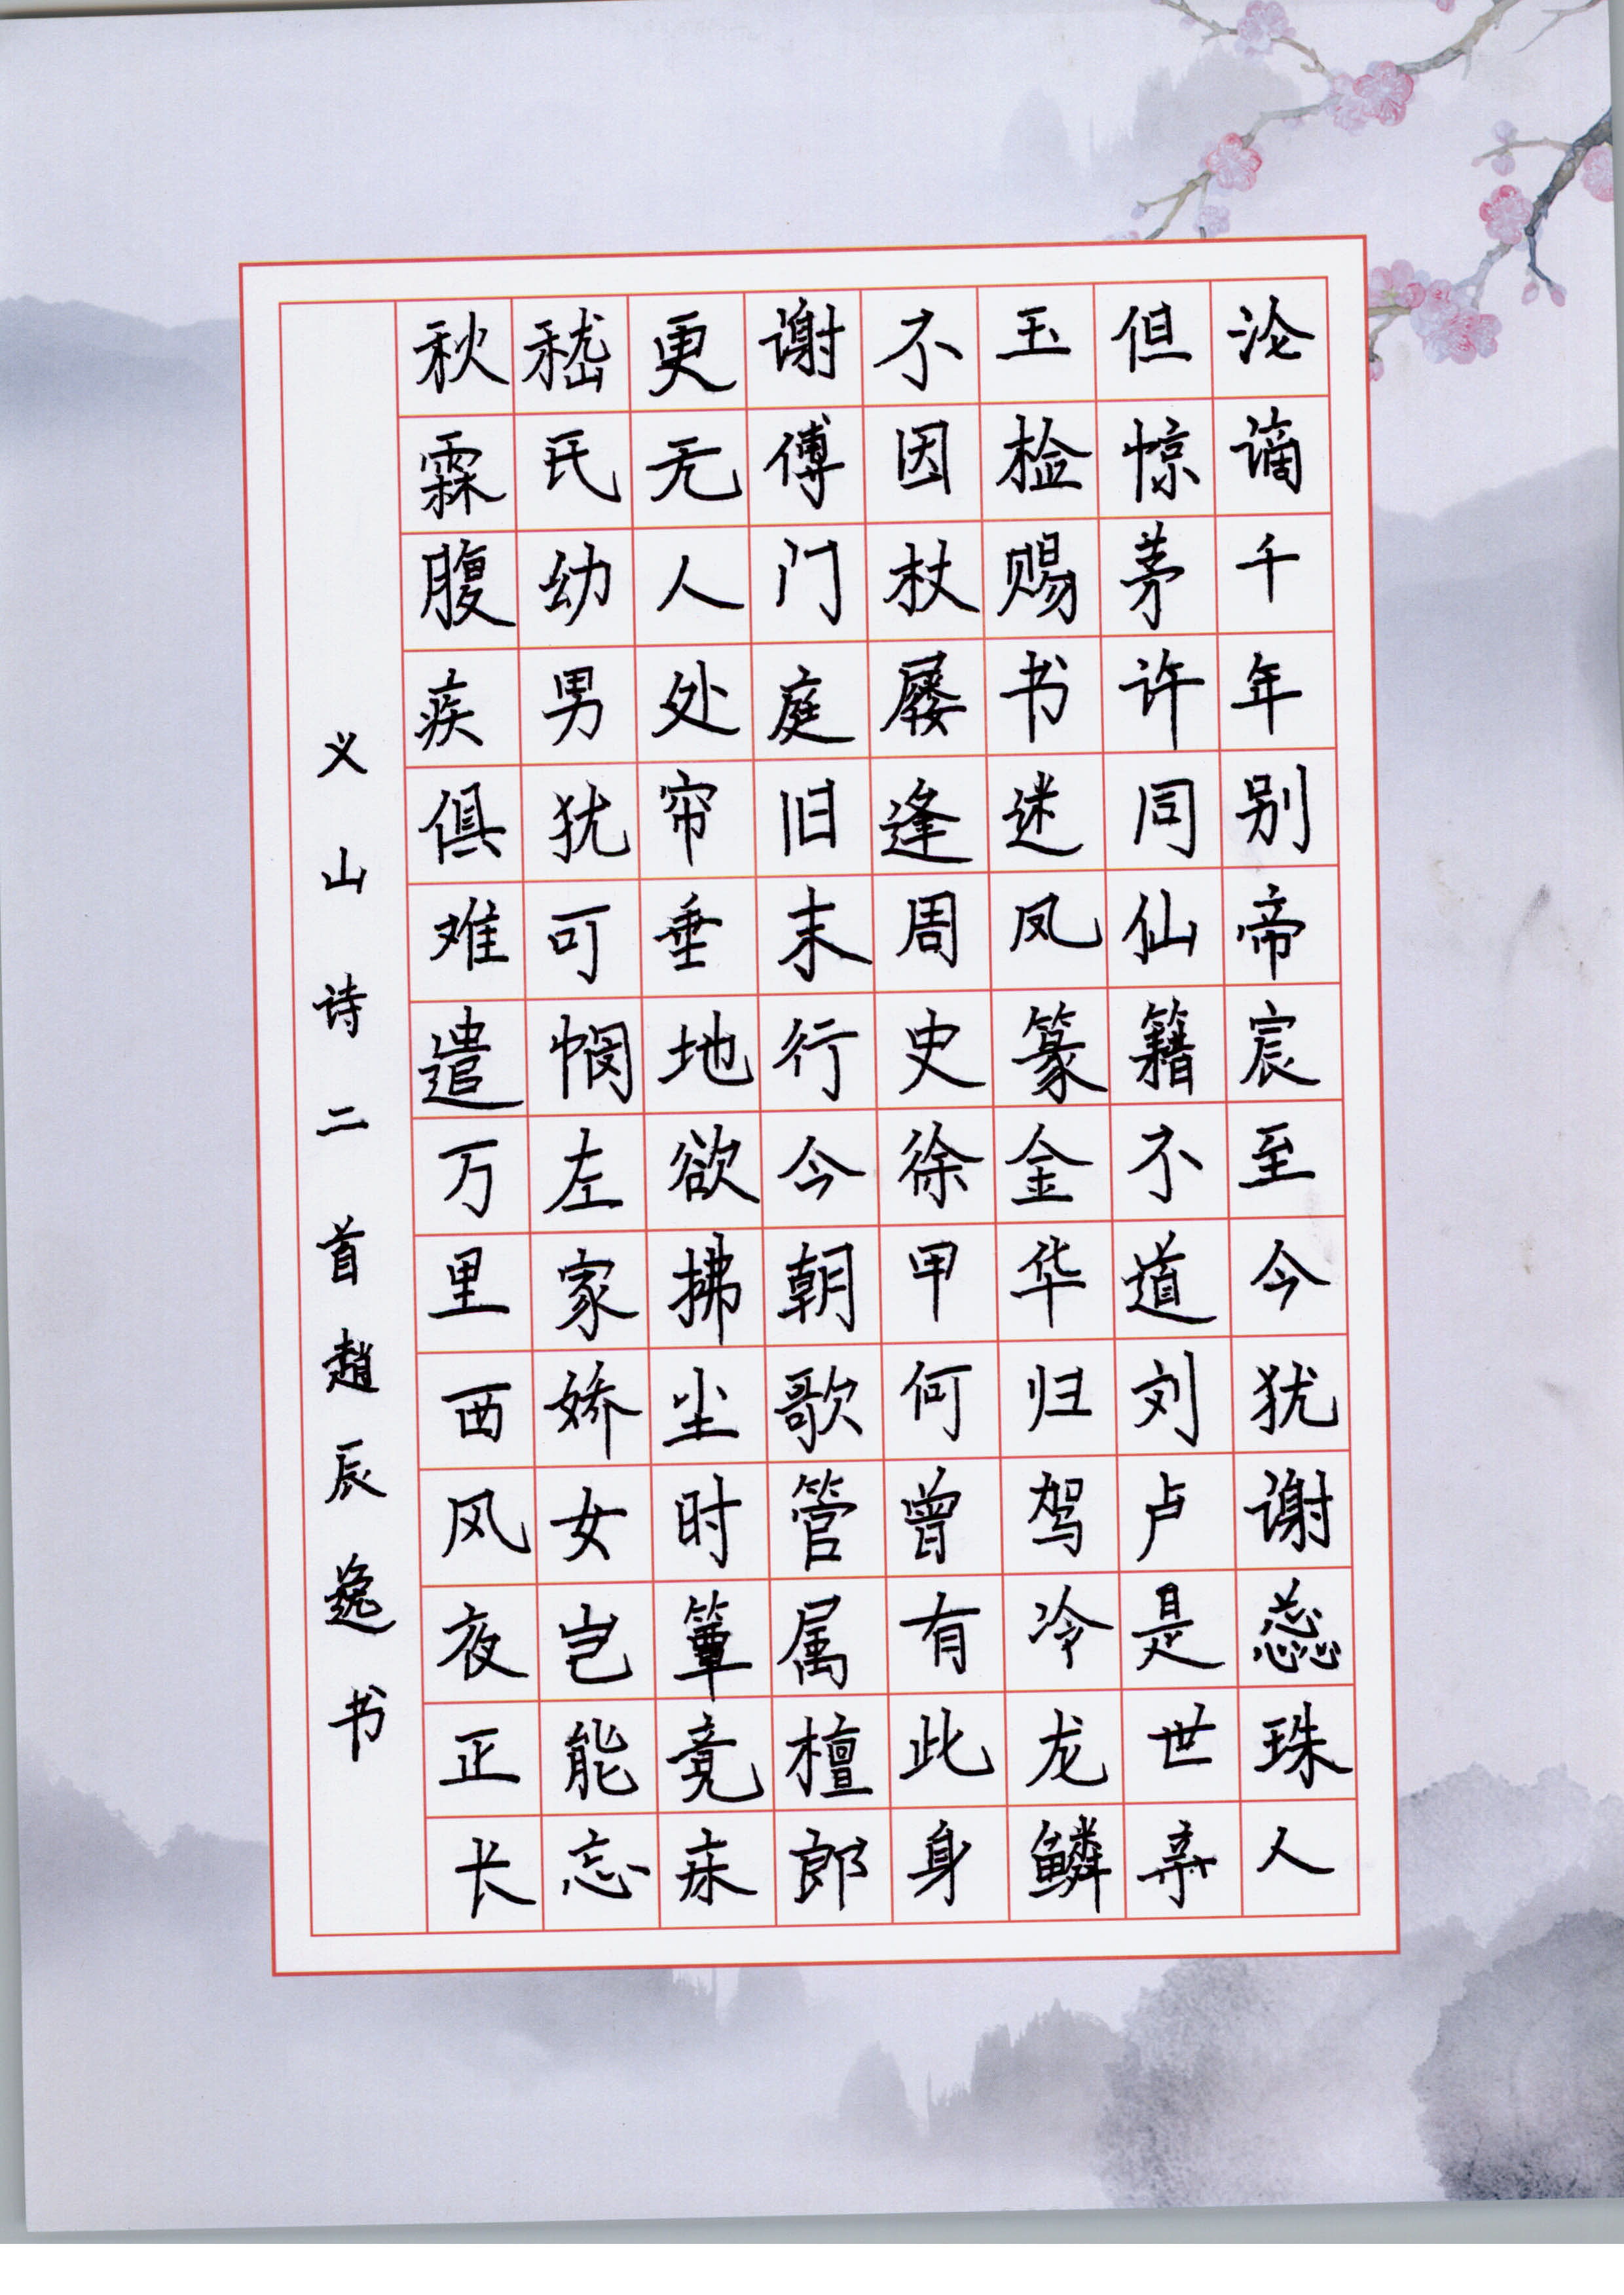 沦谪千年别帝宸至今犹谢蕊珠人
但惊茅许同仙籍不道刘卢是世亲
玉检赐书迷凤篆金华归驾冷龙鳞
不因杖屦逢周史徐甲何曾有此身
谢傅门庭旧末行今朝歌管属檀郎
更无人处帘垂地欲拂尘时簟竟床
嵇氏幼男犹可悯左家娇女岂能忘
秋霖腹疾俱难遣万里西风夜正长
义山诗二首趙辰逸书